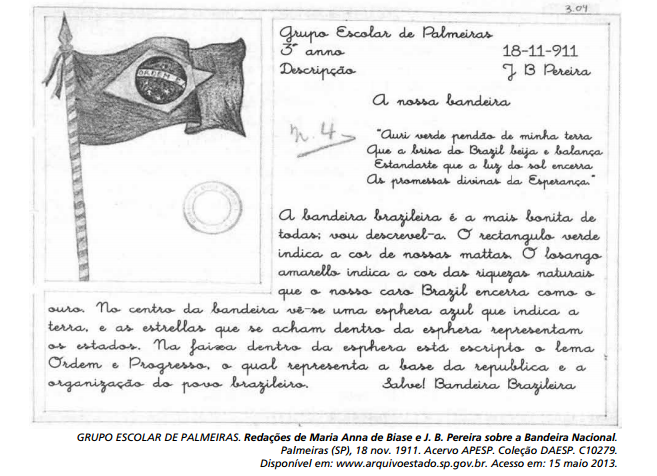 3.04
Grupo Escolar de Palmeiras
3º anno 18-11-911
Descripção J B Pereira
A nossa bandeira
n. 4
"Auri verde pendão de minha terra
Que a brisa do Brazil beija e balança
Estandarte que a luz do sol encerra
As promessas divinas da Esperança."
ORDEM E
A bandeira brazileira é a mais bonita de
todas; vou descrevel-a. O rectangulo verde
indica a cor de nossas mattas. O losango
amarello indica a cor das riquezas naturais
que o nosso caro Brazil encerra como o
ouro. No centro da bandeira vê-se uma esphera azul que indica a
terra, e as estrellas que se acham dentro da esphera representam
os estados. Na faixa dentro da esphera está escripto o lema
Ordem e Progresso, o qual representa a base da republica e a
organização do povo brazileiro. Salve! Bandeira Brazileira
GRUPO ESCOLAR DE PALMEIRAS. Redações de Maria Anna de Biase e J. B. Pereira sobre a Bandeira Nacional.
Palmeiras (SP), 18 nov. 1911. Acervo APESP. Coleção DAESP. C10279.
Disponível em: www.arquivoestado.sp.gov.br. Acesso em: 15 maio 2013.